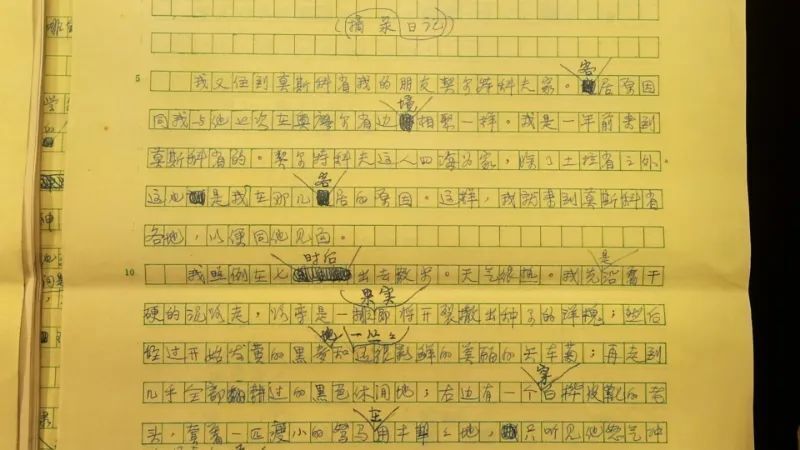 (摘录日记)
5 我又住到莫斯科省我的朋友契尔特科夫家。客居原因
同我与他上次在奥廖尔省边境相聚一样。我是一年前来到
莫斯科省的。契尔特科夫这人四海为家,除了土拉省之外。
这也是我在那儿客居的原因。这样,我就来到莫斯科省
各地,以便同他见面。
10 我照例在七时后出去散步。天气很热。我先是沿着干
硬的泥路走,路旁是一排即将开裂撒出种子的洋槐果实;然后
经过开始发黄的黑麦地和一些还很鲜的美丽的矢车菊;再走到
几乎全部翻耕过的黑色休闲地;右边有一个穿白桦皮靴的老
头,套着一匹瘦小的驽马在用木犁之地,只听见他怒气冲